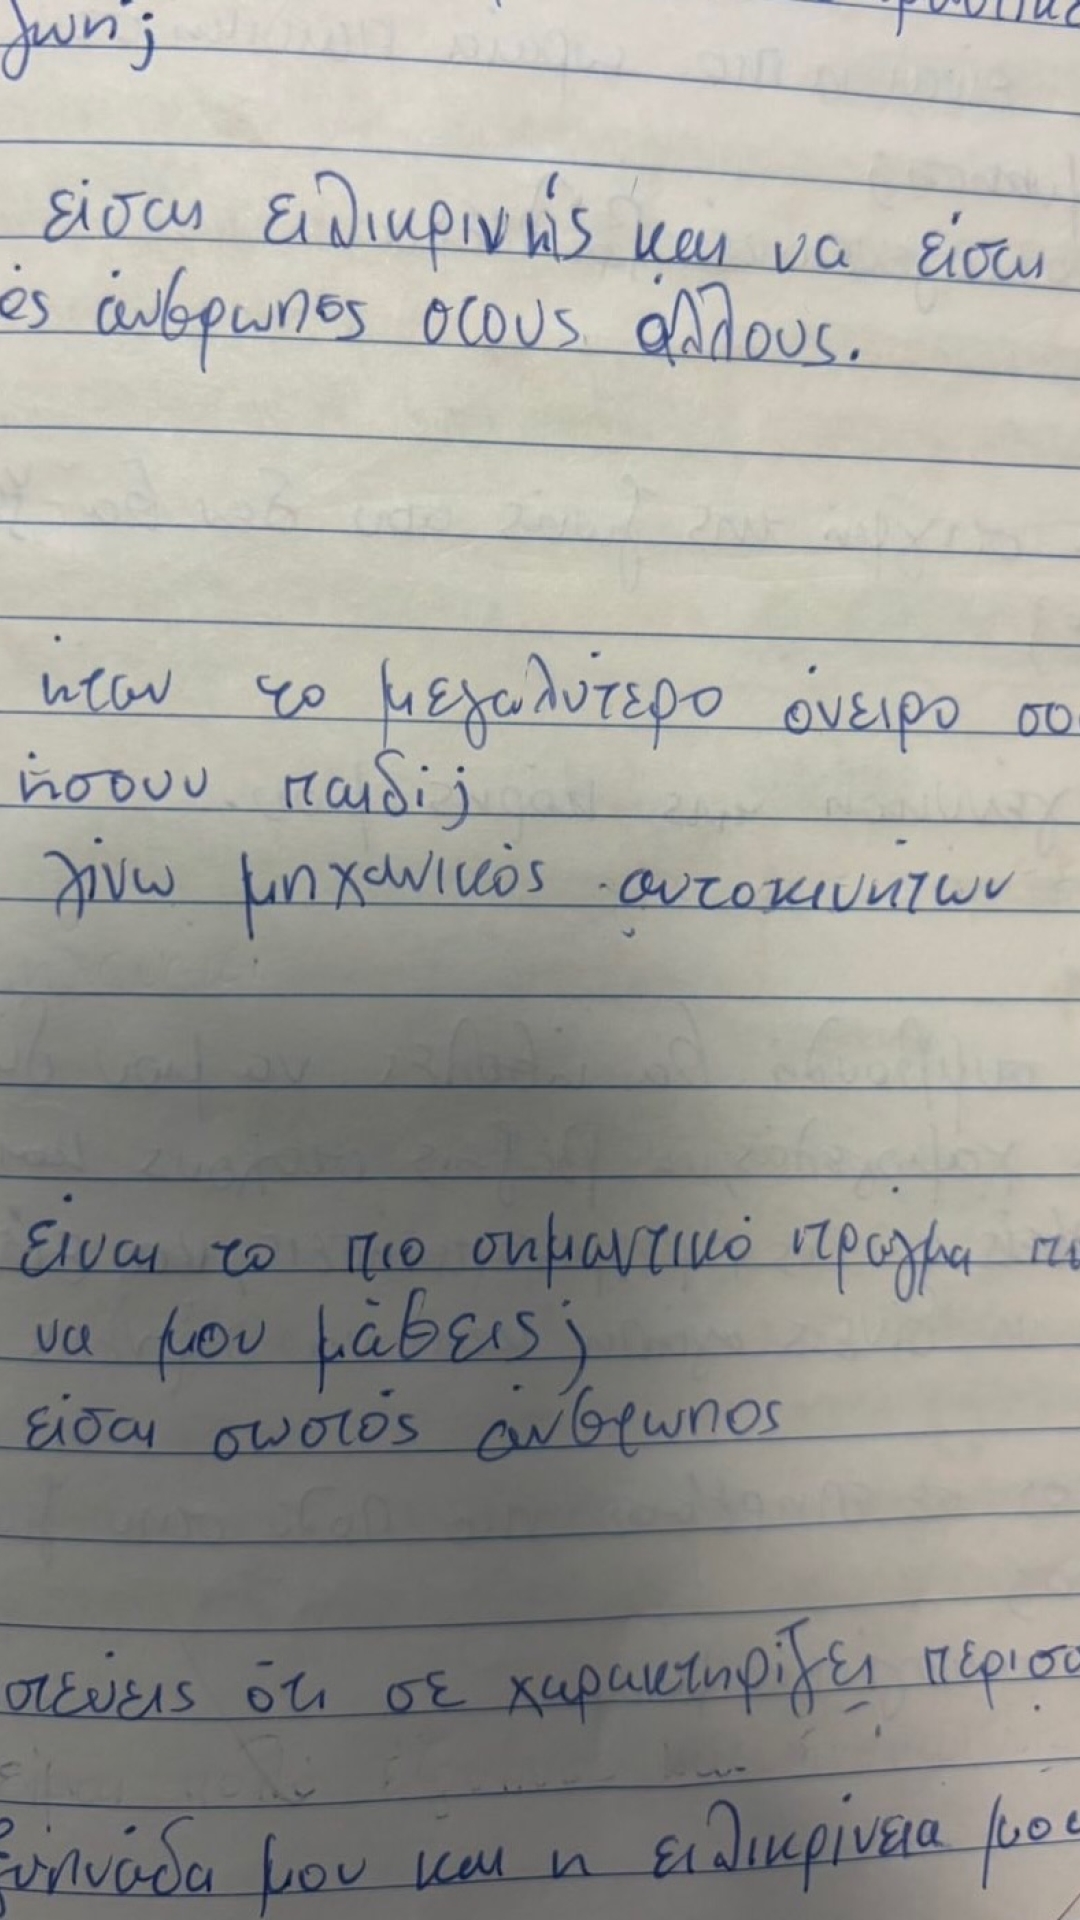 ζωή;
είσαι ειλικρινής και να είσαι
ός άνθρωπος στους άλλους.
ήταν το μεγαλύτερο όνειρο σο
ήσουν παιδί;
γίνω μηχανικός αυτοκινήτων
είναι το πιο σημαντικό πράγμα
να μου μάθεις;
είσαι σωστός άνθρωπος
στεύεις ότι σε χαρακτηρίζει περισσ
ξυπνάδα μου και η ειλικρίνεια μου